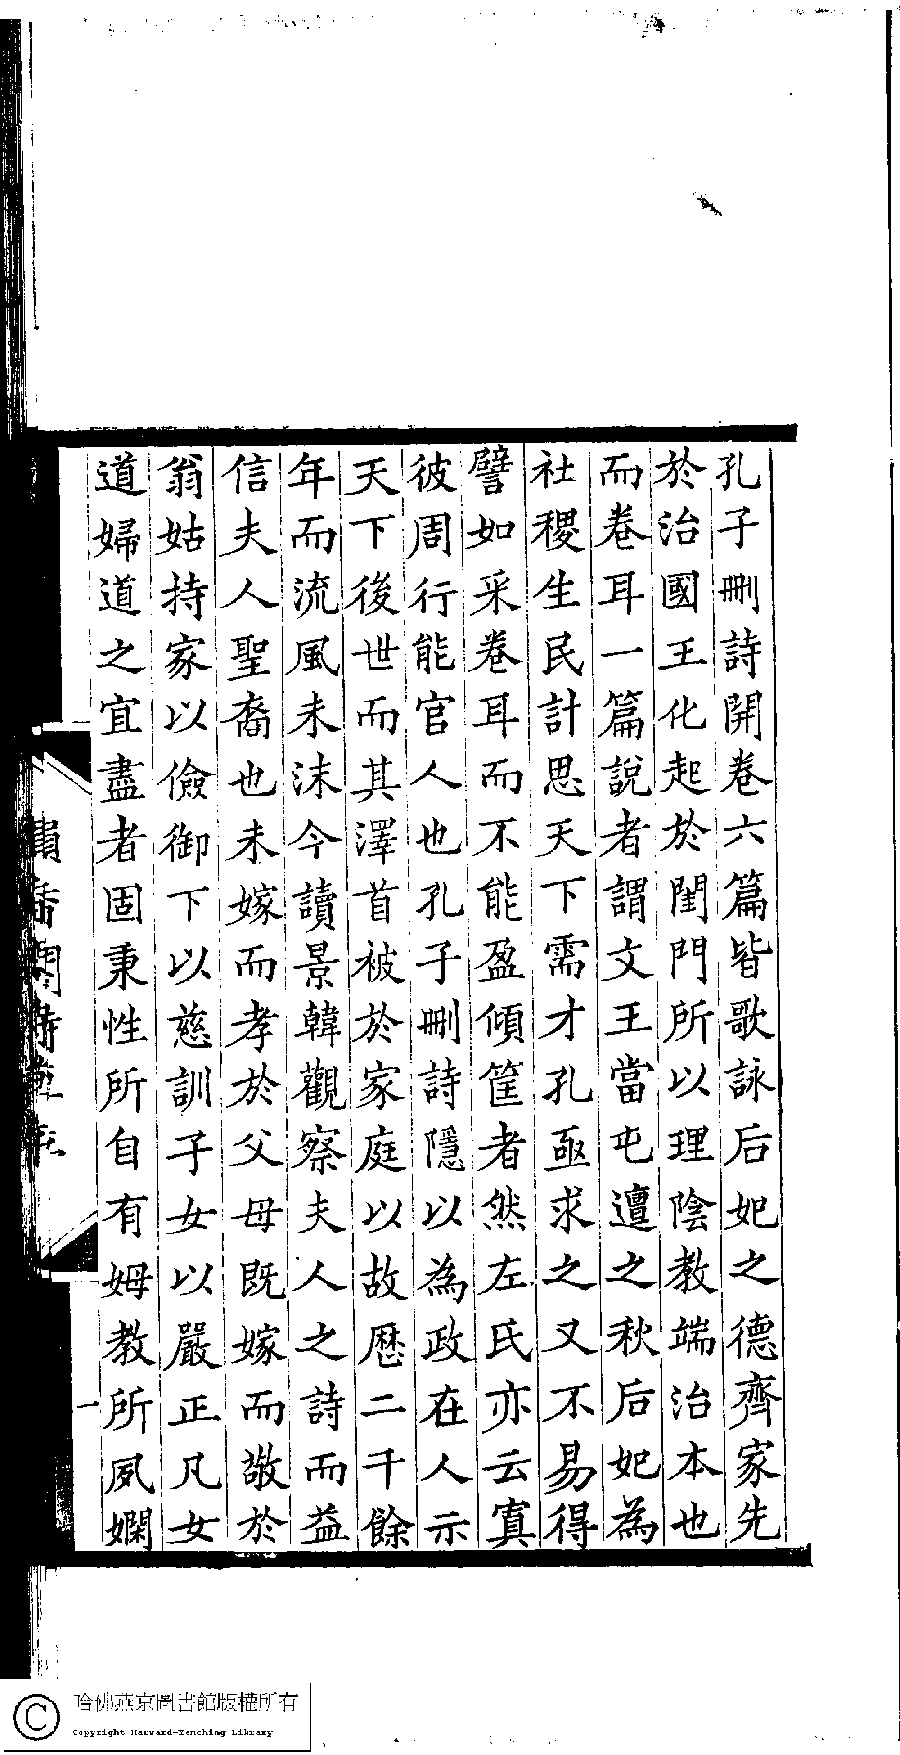 孔子刪詩開卷六篇皆歌詠后妃之德齊家先
於治國王化起於閨門所以理陰教端治本也
而卷耳一篇說者謂文王當屯邅之秋后妃為
社稷生民計思天下需才孔亟求之又不易得
譬如采卷耳而不能盈傾筐者然左氏亦云寘
彼周行能官人也孔子刪詩隱以為政在人示
天下後世而其澤首被於家庭以故歷二千餘
年而流風未沬今讀景韓觀察夫人之詩而益
信夫人聖裔也未嫁而孝於父母既嫁而敬於
翁姑持家以儉御下以慈訓子女以嚴正凡女
道婦道之宜盡者固秉性所自有姆教所夙嫻
一
哈佛燕京圖書館版權所有
Copyright Harvard-Yenching Library